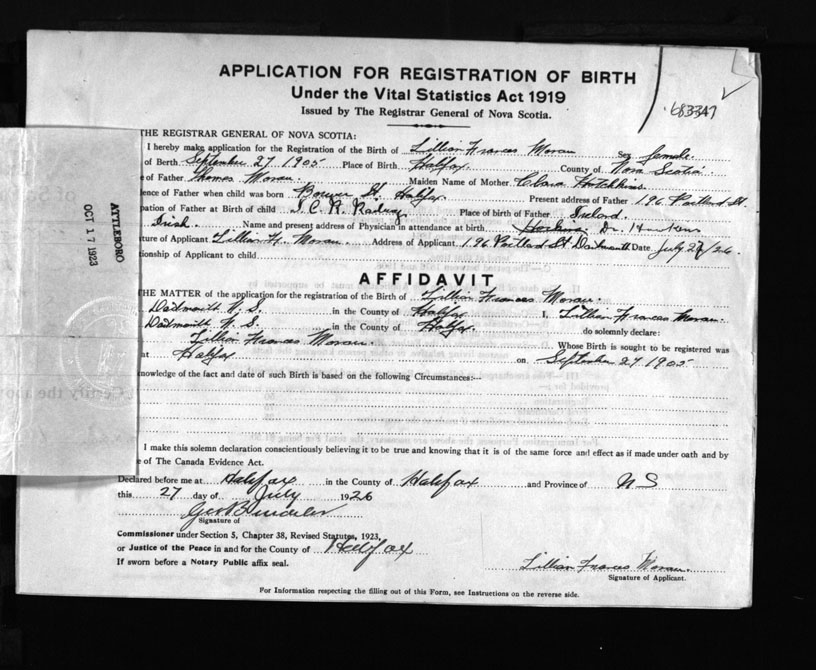 APPLICATION FOR REGISTRATION OF BIRTH
Under the Vital Statistics Act 1919
Issued by The Registrar General of Nova Scotia.
683347
THE REGISTRAR GENERAL OF NOVA SCOTIA:
I hereby make application for the Registration of the Birth of Lillian Frances Moran Sex female
of Berth September 27 1905 Place of Birth Halifax County of Nova Scotia
e of Father Thomas Moran. Maiden Name of Mother Clara Hotchkiss
ence of Father when child was born St. Halifax Present address of Father 196 Portland St.
pation of Father at Birth of child I. C. R. Railway Place of birth of Father Ireland.
Irish. Name and present address of Physician in attendance at birth Dr.
ture of Applicant Lillian F. Moran. Address of Applicant 196 Portland St Dartmouth Date July 27/26.
tionship of Applicant to child
ATTLEBORO
OCT 17 1923
AFFIDAVIT
THE MATTER of the application for the registration of the Birth of Lillian Frances Moran.
Dartmouth N. S. in the County of Halifax I, Lillian Frances Moran.
Dartmouth N. S. in the County of Halifax do solemnly declare:
Lillian Frances Moran. Whose Birth is sought to be registered was
at Halifax on September 27 1905
nowledge of the fact and date of such Birth is based on the following Circumstances:--
I make this solemn declaration conscientiously believing it to be true and knowing that it is of the same force and effect as if made under oath and by
e of The Canada Evidence Act.
Declared before me at Halifax in the County of Halifax and Province of N S
this 27 day of July 1926
Signature of
Commissioner under Section 5, Chapter 38, Revised Statutes, 1923,
or Justice of the Peace in and for the County of Halifax
If sworn before a Notary Public affix seal.
Lillian Frances Moran.
Signature of Applicant.
For Information respecting the filling out of this Form, see Instructions on the reverse side.